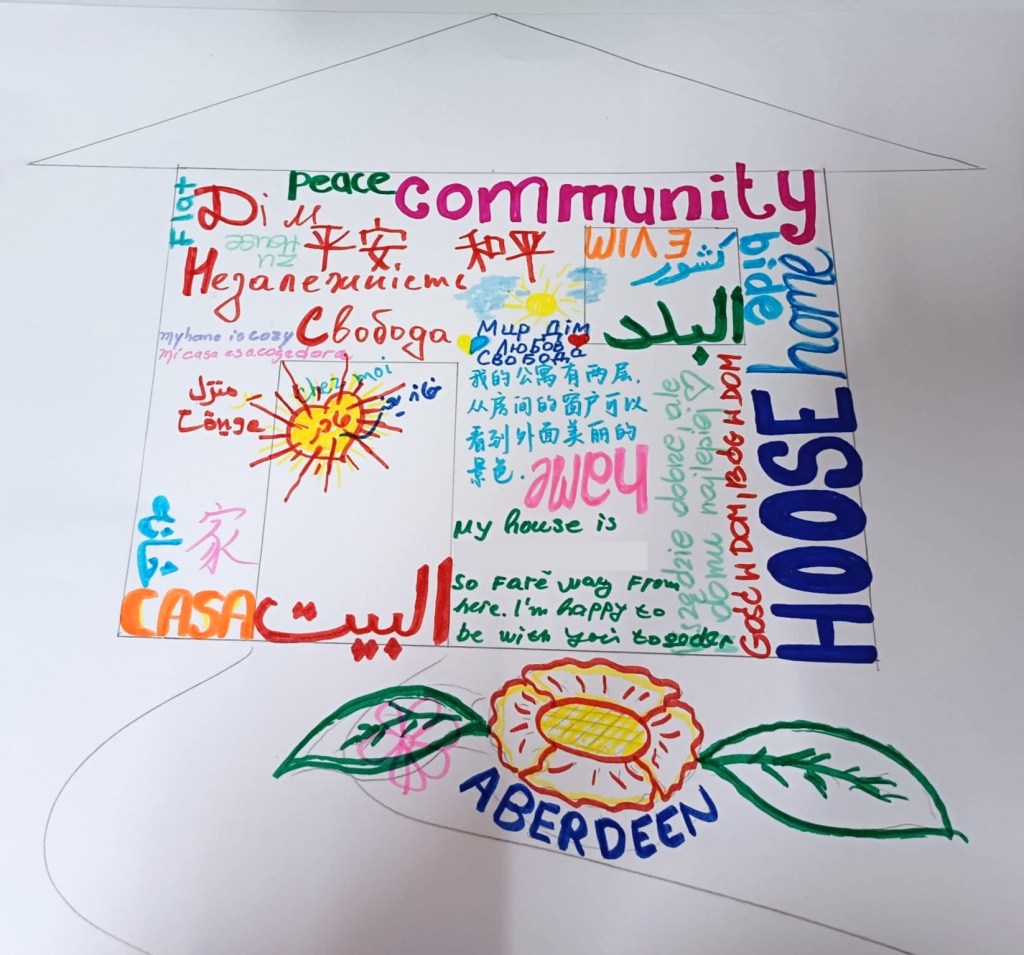 Flat
Peace
community
Дім
zu House
平安
和平
EVIM
كشور
bide
home
Незалежність
البلد
Свобода
my home is cozy
mi casa es acogedora
Мир Дім
Любов
Свобода
chez moi
منزل
مادر
我的公寓有两层，
从房间的窗户可以
看到外面美丽的
景色.
home
HOOSE
wszędzie dobrze, ale
w domu najlepiej
GOŚĆ W DOM, BÓG W DOM
家
خانه
CASA
البيت
My house is
So fare way from
here. I'm happy to
be with you togeder
ABERDEEN